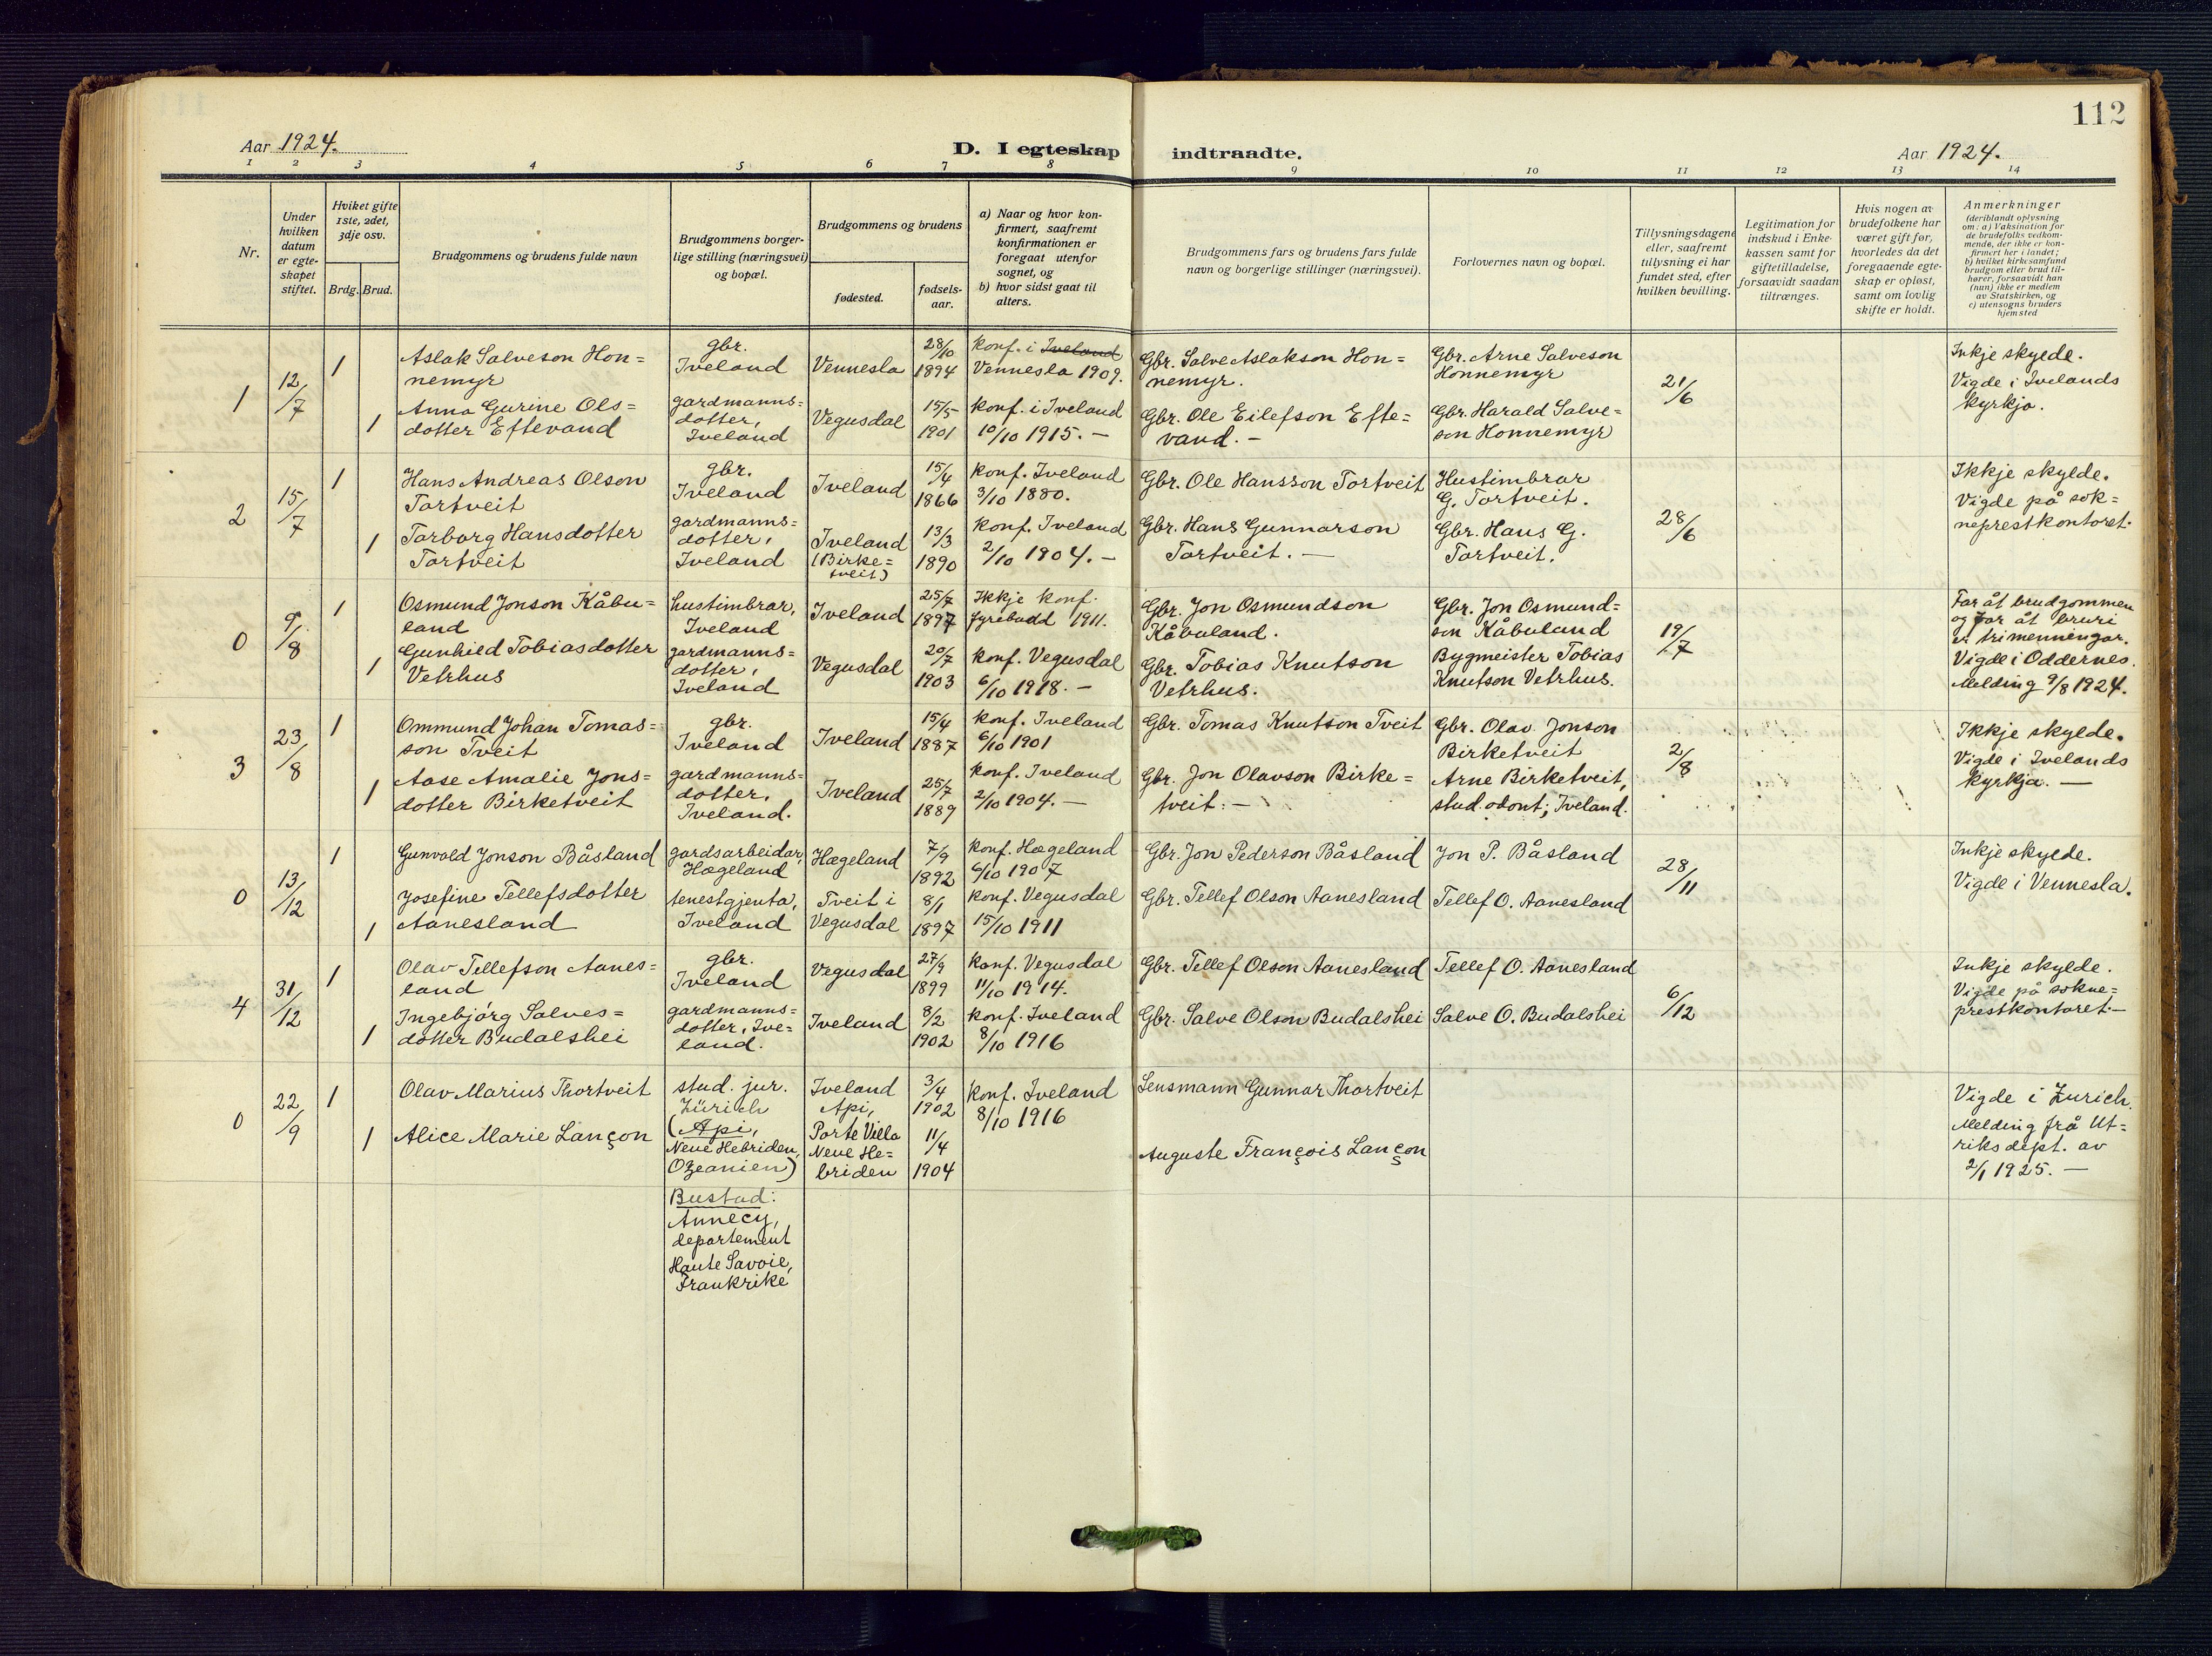 112
Aar 1924.
D. I egteskap indtraadte.
Aar 1924.
1 2 3 4 5 6 7 8 9 10 11 12 13 14
Nr.
Under
hvilken
datum
er egte-
skapet
stiftet.
Hviket gifte
1ste, 2det,
3dje osv.
Brdg. Brud.
Brudgommens og brudens fulde navn
Brudgommens borger-
lige stilling (næringsvei)
og bopæl.
Brudgommens og brudens
fødested.
fødsels-
aar.
a) Naar og hvor kon-
firmert, saafremt
konfirmationen er
foregaat utenfor
sognet, og
b) hvor sidst gaat til
alters.
Brudgommens fars og brudens fars fulde
navn og borgerlige stillinger (næringsvei).
Forlovernes navn og bopæl.
Tillysningsdagene
eller, saafremt
tillysning ei har
fundet sted, efter
hvilken bevilling.
Legitimation for
indskud i Enke-
kassen samt for
giftetilladelse,
forsaavidt saadan
tiltrænges.
Hvis nogen av
brudefolkene har
været gift før,
hvorledes da det
foregaaende egte-
skap er opløst,
samt om lovlig
skifte er holdt.
Anmerkninger
(deriblandt oplysning
om: a) Vaksination for
de brudefolks vedkom-
mende, der ikke er kon-
firmert her i landet;
b) hvilket kirkesamfund
brudgom eller brud til-
hører, forsaavidt han
(hun) ikke er medlem
av Statskirken, og
c) utensogns bruders
hjemsted
1
12/7
1
Aslak Salveson Hon=
nemyr
gbr.
Iveland
Vennesla
28/10
1894
Konf. i Iveland
Vennesla 1909.
Gbr. Salve Aslakson Hon=
nemyr.
Gbr. Arne Salveson
Honnemyr
21/6
Inkje skyede.
Vigde i Ivelands
kyrkja.
1
Anna Gurine Ols=
dotter Eftevand
gardmanns=
dotter,
Iveland
Vegusdal
15/5
1901
Konf. i Iveland
10/10 1915. —
Gbr. Ole Eilefson Efte=
vand. —
Gbr. Harald Salve=
son Honnemyr
2
15/7
1
Hans Andreas Olson
Tortveit
gbr.
Iveland
Iveland
15/4
1866
Konf. Iveland
3/10 1880.
Gbr. Ole Hansson Tortveit
Hustimbrar
G. Tortveit.
28/6
Ikkje skylde.
Vigde på sok=
neprestkontoret.
1
Torborg Hansdotter
Tortveit
gardmanns=
dotter,
Iveland
Iveland
(Birke=
tveit)
13/3
1890
Konf. Iveland
2/10 1904. —
Gbr. Hans Gunnarson
Tortveit. —
Gbr. Hans G.
Tortveit.
0
9/8
1
Osmund Jonson Kåbu=
land
hustimbrar,
Iveland
Iveland
25/7
1897
Ikkje konf.
fyrebudd 1911.
Gbr. Jon Osmundson
Kåbuland.
Gbr. Jon Osmund=
son Kåbuland
19/7
Far åt brudgommen
og far åt bruri
er trimenningar.
Vigde i Oddernes.
Melding 9/8 1924.
1
Gunhild Tobiasdotter
Vetrhus
gardmanns=
dotter,
Iveland
Vegusdal
20/7
1903
Konf. Vegusdal
6/10 1918. —
Gbr. Tobias Knutson
Vetrhus.
Bygmeister Tobias
Knutson Vetrhus.
3
23/8
1
Ommund Johan Tomas=
son Tveit
gbr.
Iveland
Iveland
15/4
1887
Konf. Iveland
6/10 1901
Gbr. Tomas Knutson Tveit
Gbr. Olav Jonson
Birketveit
2/8
Ikkje skylde.
Vigde i Ivelands
kyrkja. —
1
Aase Amalie Jons=
dotter Birketveit
gardmanns=
dotter,
Iveland.
Iveland
25/7
1889
Konf. Iveland
2/10 1904. —
Gbr. Jon Olavson Birke=
tveit. —
Arne Birketveit,
stud. odont; Iveland.
0
13/12
1
Gunvald Jonson Båsland
gardsarbeidar,
Hægeland
Hægeland
7/9
1892
Konf. Hægeland
6/10 1907
Gbr. Jon Pederson Båsland
Jon P. Båsland
28/11
Inkje skyede.
Vigde i Vennesla.
1
Josefine Tellefsdotter
Aanesland
tenestgjenta,
Iveland
Tveit i
Vegusdal
8/1
1897
Konf. Vegusdal
15/10 1911
Gbr. Tellef Olson Aanesland
Tellef O. Aanesland
4
31/12
1
Olav Tellefson Aanes=
land
gbr.
Iveland
Vegusdal
27/9
1899
Konf. Vegusdal
11/10 1914.
Gbr. Tellef Olson Aanesland
Tellef O. Aanesland
6/12
Inkje skylde.
Vigde på sokne=
prestkontoret. —
1
Ingebjórg Salves=
dotter Budalshei
gardmanns=
dotter, Ive=
land.
Iveland
8/2
1902
Konf. Iveland
8/10 1916
Gbr. Salve Olson Budalshei
Salve O. Budalshei
0
22/9
1
Olav Marius Thortveit
stud. jur.
Zürich
Iveland
3/4
1902
Konf. Iveland
8/10 1916
Lensmann Gunnar Thortveit
Vigde i Zurich.
Melding frå Ut=
riksdept. av
2/1 1925. —
1
Alice Marie Lançon
(Api,
Neue Hebriden,
Ozeanien)
Bustad:
Annecy,
departement
Haute Savoie,
Frankrike
Api,
Porte Villa
Neue He=
briden
11/4
1904
Auguste François Lançon